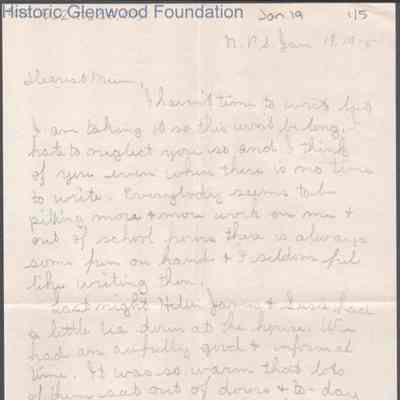 Historic Glenwood Foundation
Jan. 19 1/5
N.P.S. Jan 19, 19
Dearest Mum,
I haven't time to write but
I am taking it so this won't be long.
hate to neglect you so and I think
of you even when there is no time
to write. Everybody seems to be
piling more & more work on me &
out of school hours there is always
some fun on hand & I seldom feel
like writing then.
Last night Helen & Susie had
a little tea down at the house. We
had an awfully good & informal
time. It was so warm that lots
of them sat out of doors & to-day